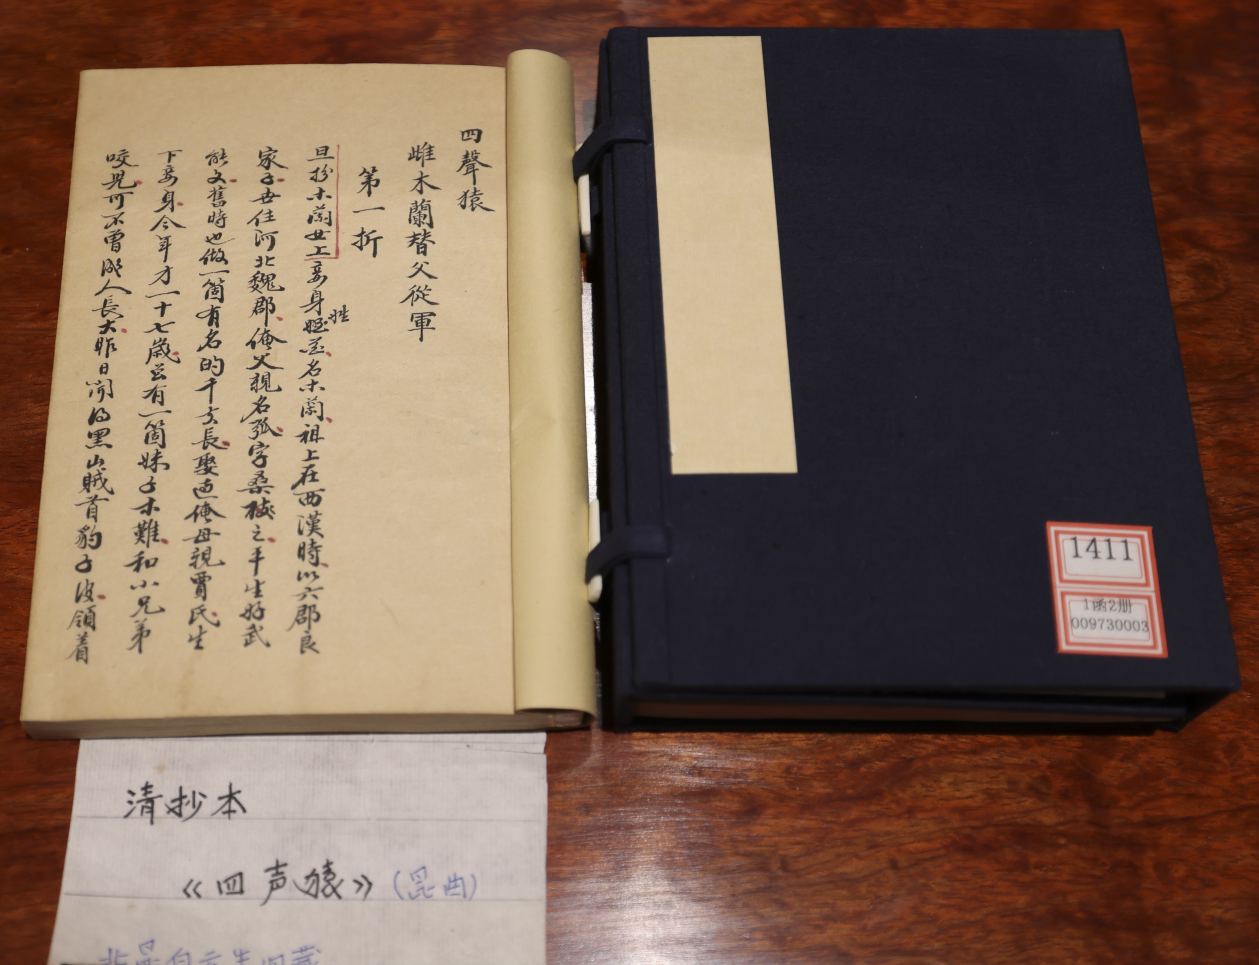 四聲猿
雌木蘭替父從軍
第一折
旦扮木蘭女上妾身姓花名木蘭祖上在西漢時以六郡良
家子世住河北魏郡俺父親名弧字桑之平生好武
能文舊時也做一箇有名的千夫長娶過俺母親賈氏生
下妾身今年才一十七歲並有一箇妹子木難和小兄弟
咬兒可不曾成人長大昨日聞得黑山賊首豹子皮領着
姓
1411
1函2册
009730003
清抄本
《四声猿》(昆曲)